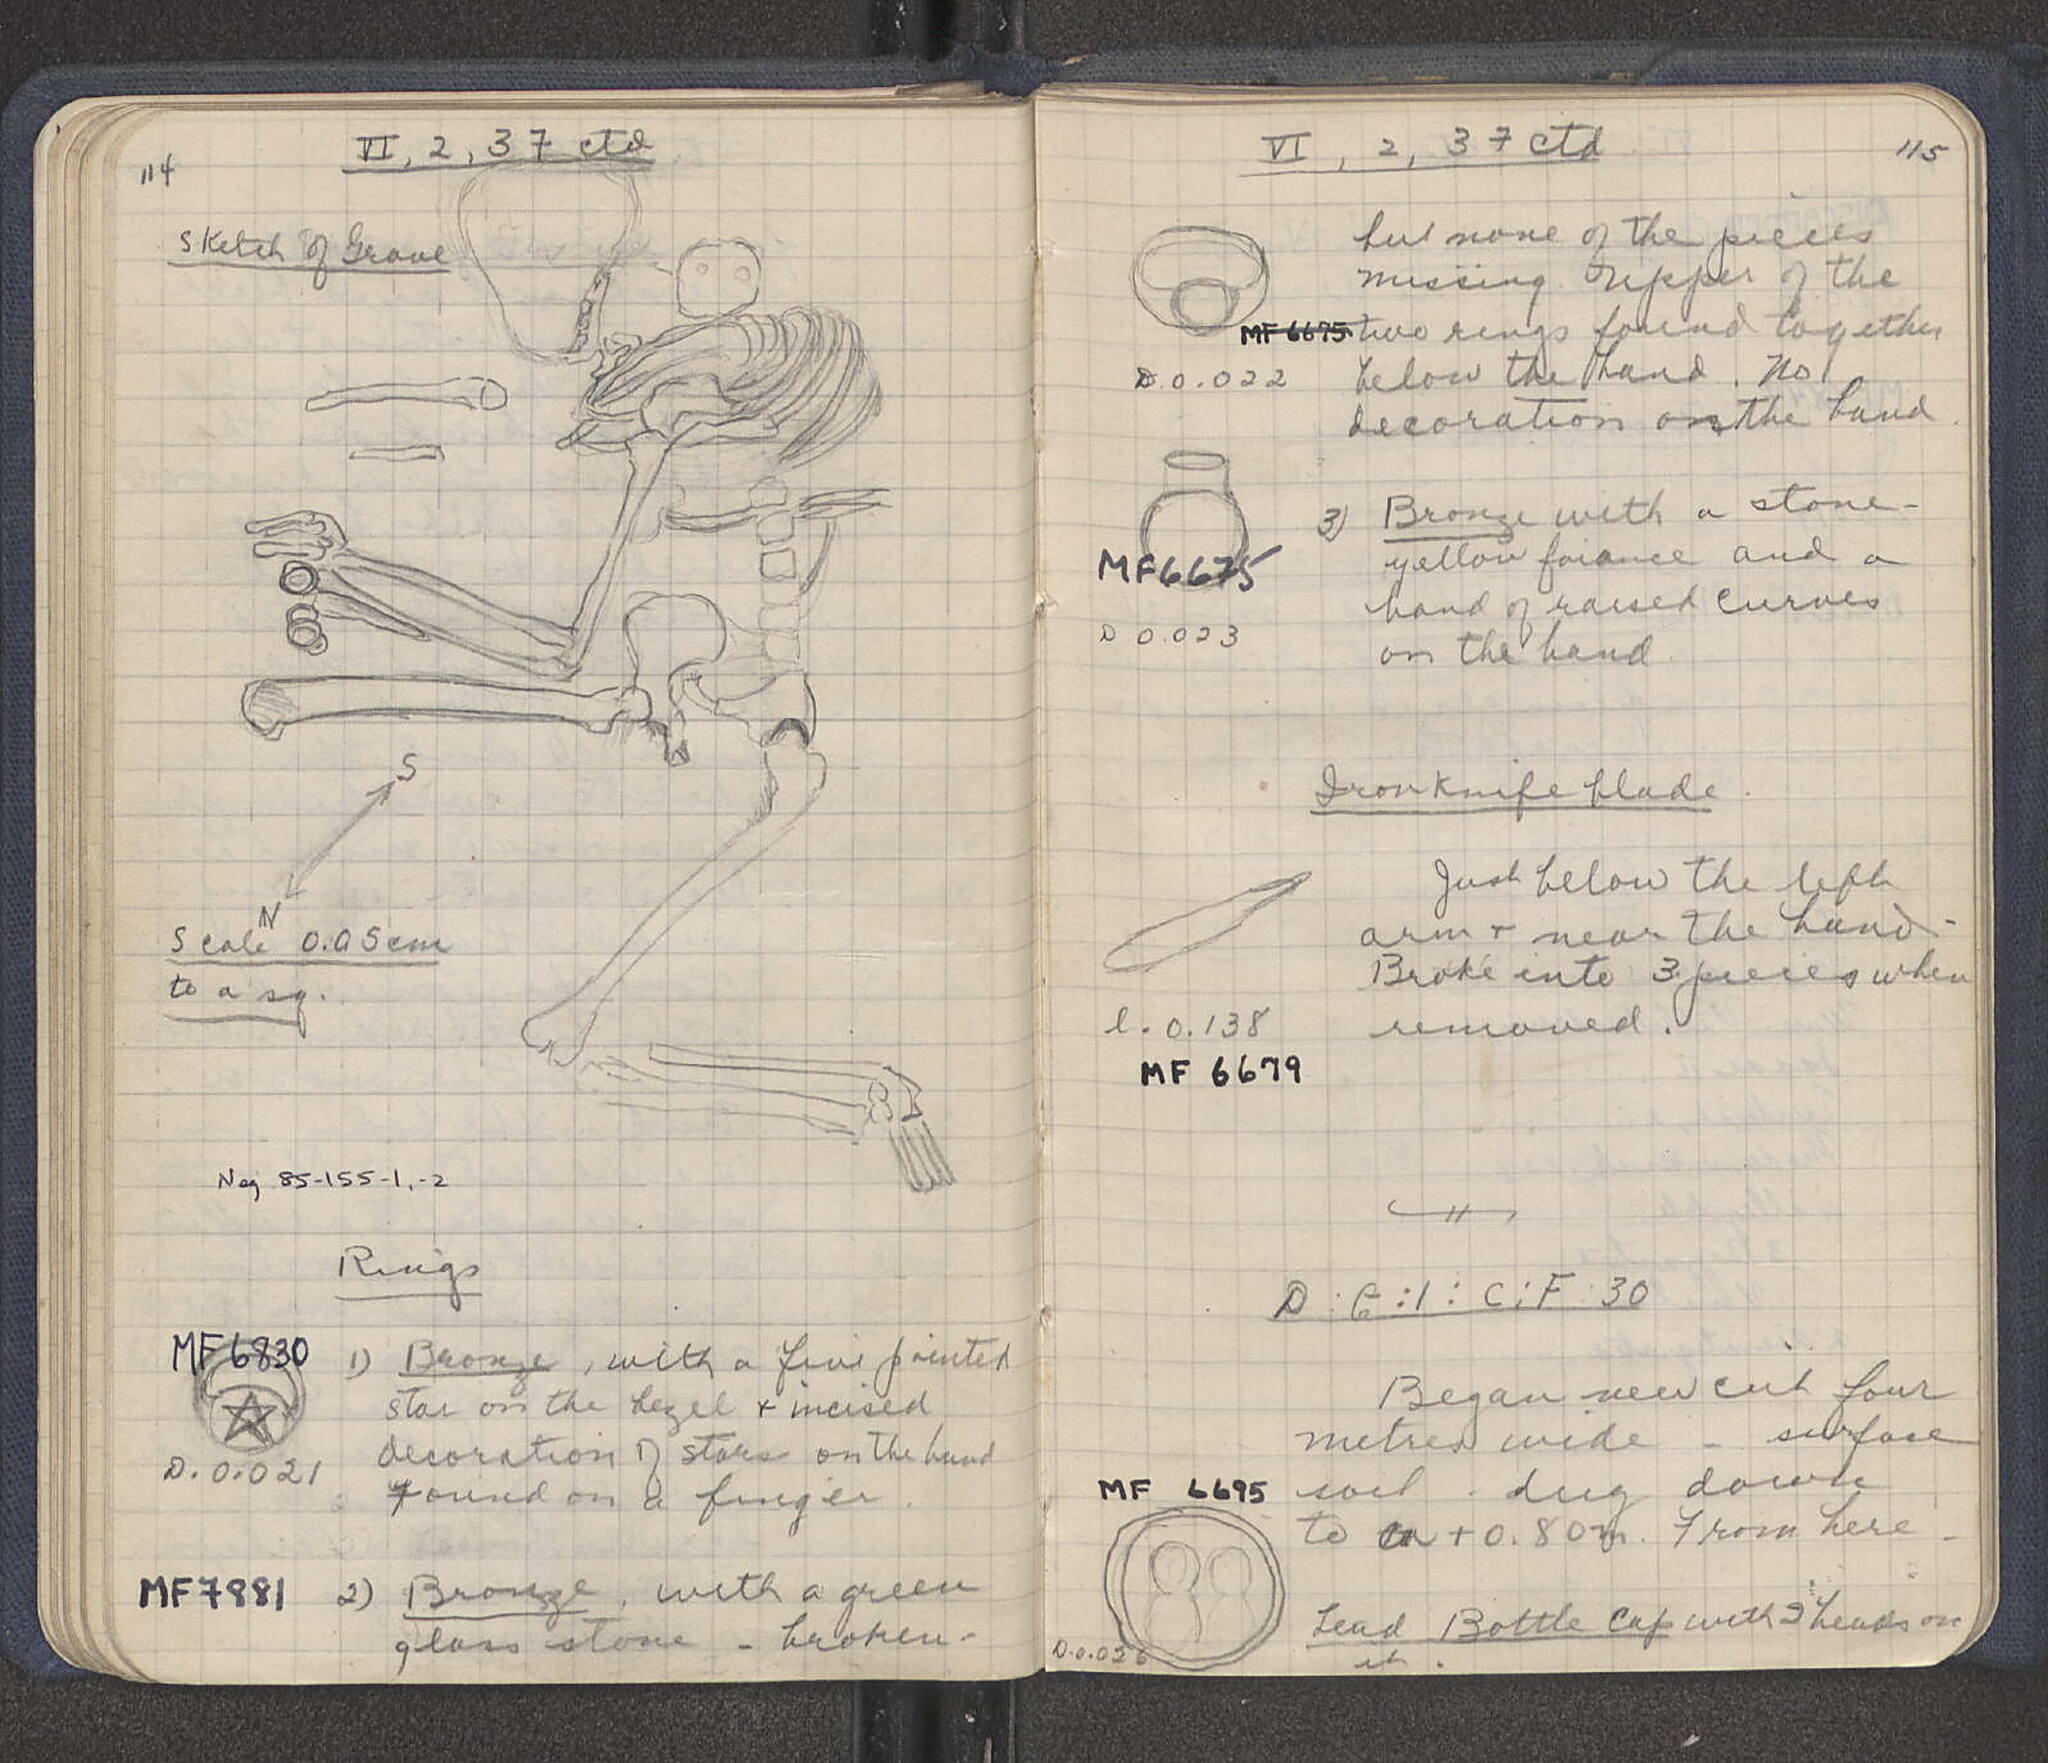 114
VI, 2, 37 ctd
Sketch of Grave
S
N
Scale 0.05cm
to a sq.
Neg 85-155-1,-2
Rings
MF 6830
D. 0.021
1) Bronze, with a five pointed
star on the bezel + incised
decoration of stars on the band
Found on a finger.
MF 7881
2) Bronze, with a green
glass stone - broken -
VI, 2, 37 ctd
115
but none of the pieces
missing. Upper of the
MF 6675 two rings found together
D. 0.022
below the hand. No
decoration on the band.
MF 6675
D 0.023
3) Bronze with a stone -
yellow faiance and a
band of raised curves
on the band
Iron knife blade.
Just below the left
arm + near the hand -
Broke into 3 pieces when
removed.
l. 0.138
MF 6679
D : 6 : 1 : C : F : 30
Began new cut four
metres wide - surface
soil - dug down
to + 0.80m. From here -
MF 6695
D. 0.026
Lead Bottle Cap with 2 heads on
it.